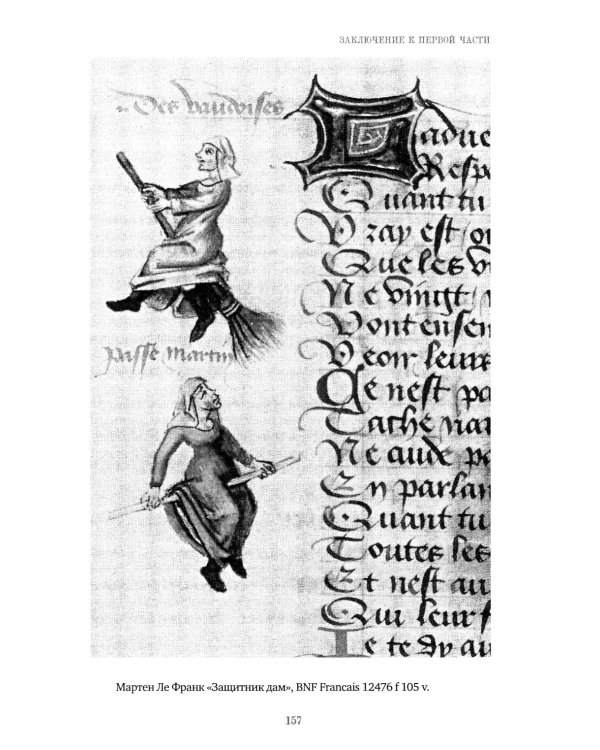 ЗАКЛЮЧЕНИЕ К ПЕРВОЙ ЧАСТИ
Des vaudoises
passe martin
adue
Respe
Quant tu
Vray est
Que les v
Ne vingt
Vont ensen
Veoir leurs
Ce nest pa
Tache
Ne aude pa
En parlan
Quant tu
Toutes les
Et nest au
Qui leur
Ie te dy au
Мартен Ле Франк «Защитник дам», BNF Francais 12476 f 105 v.
157